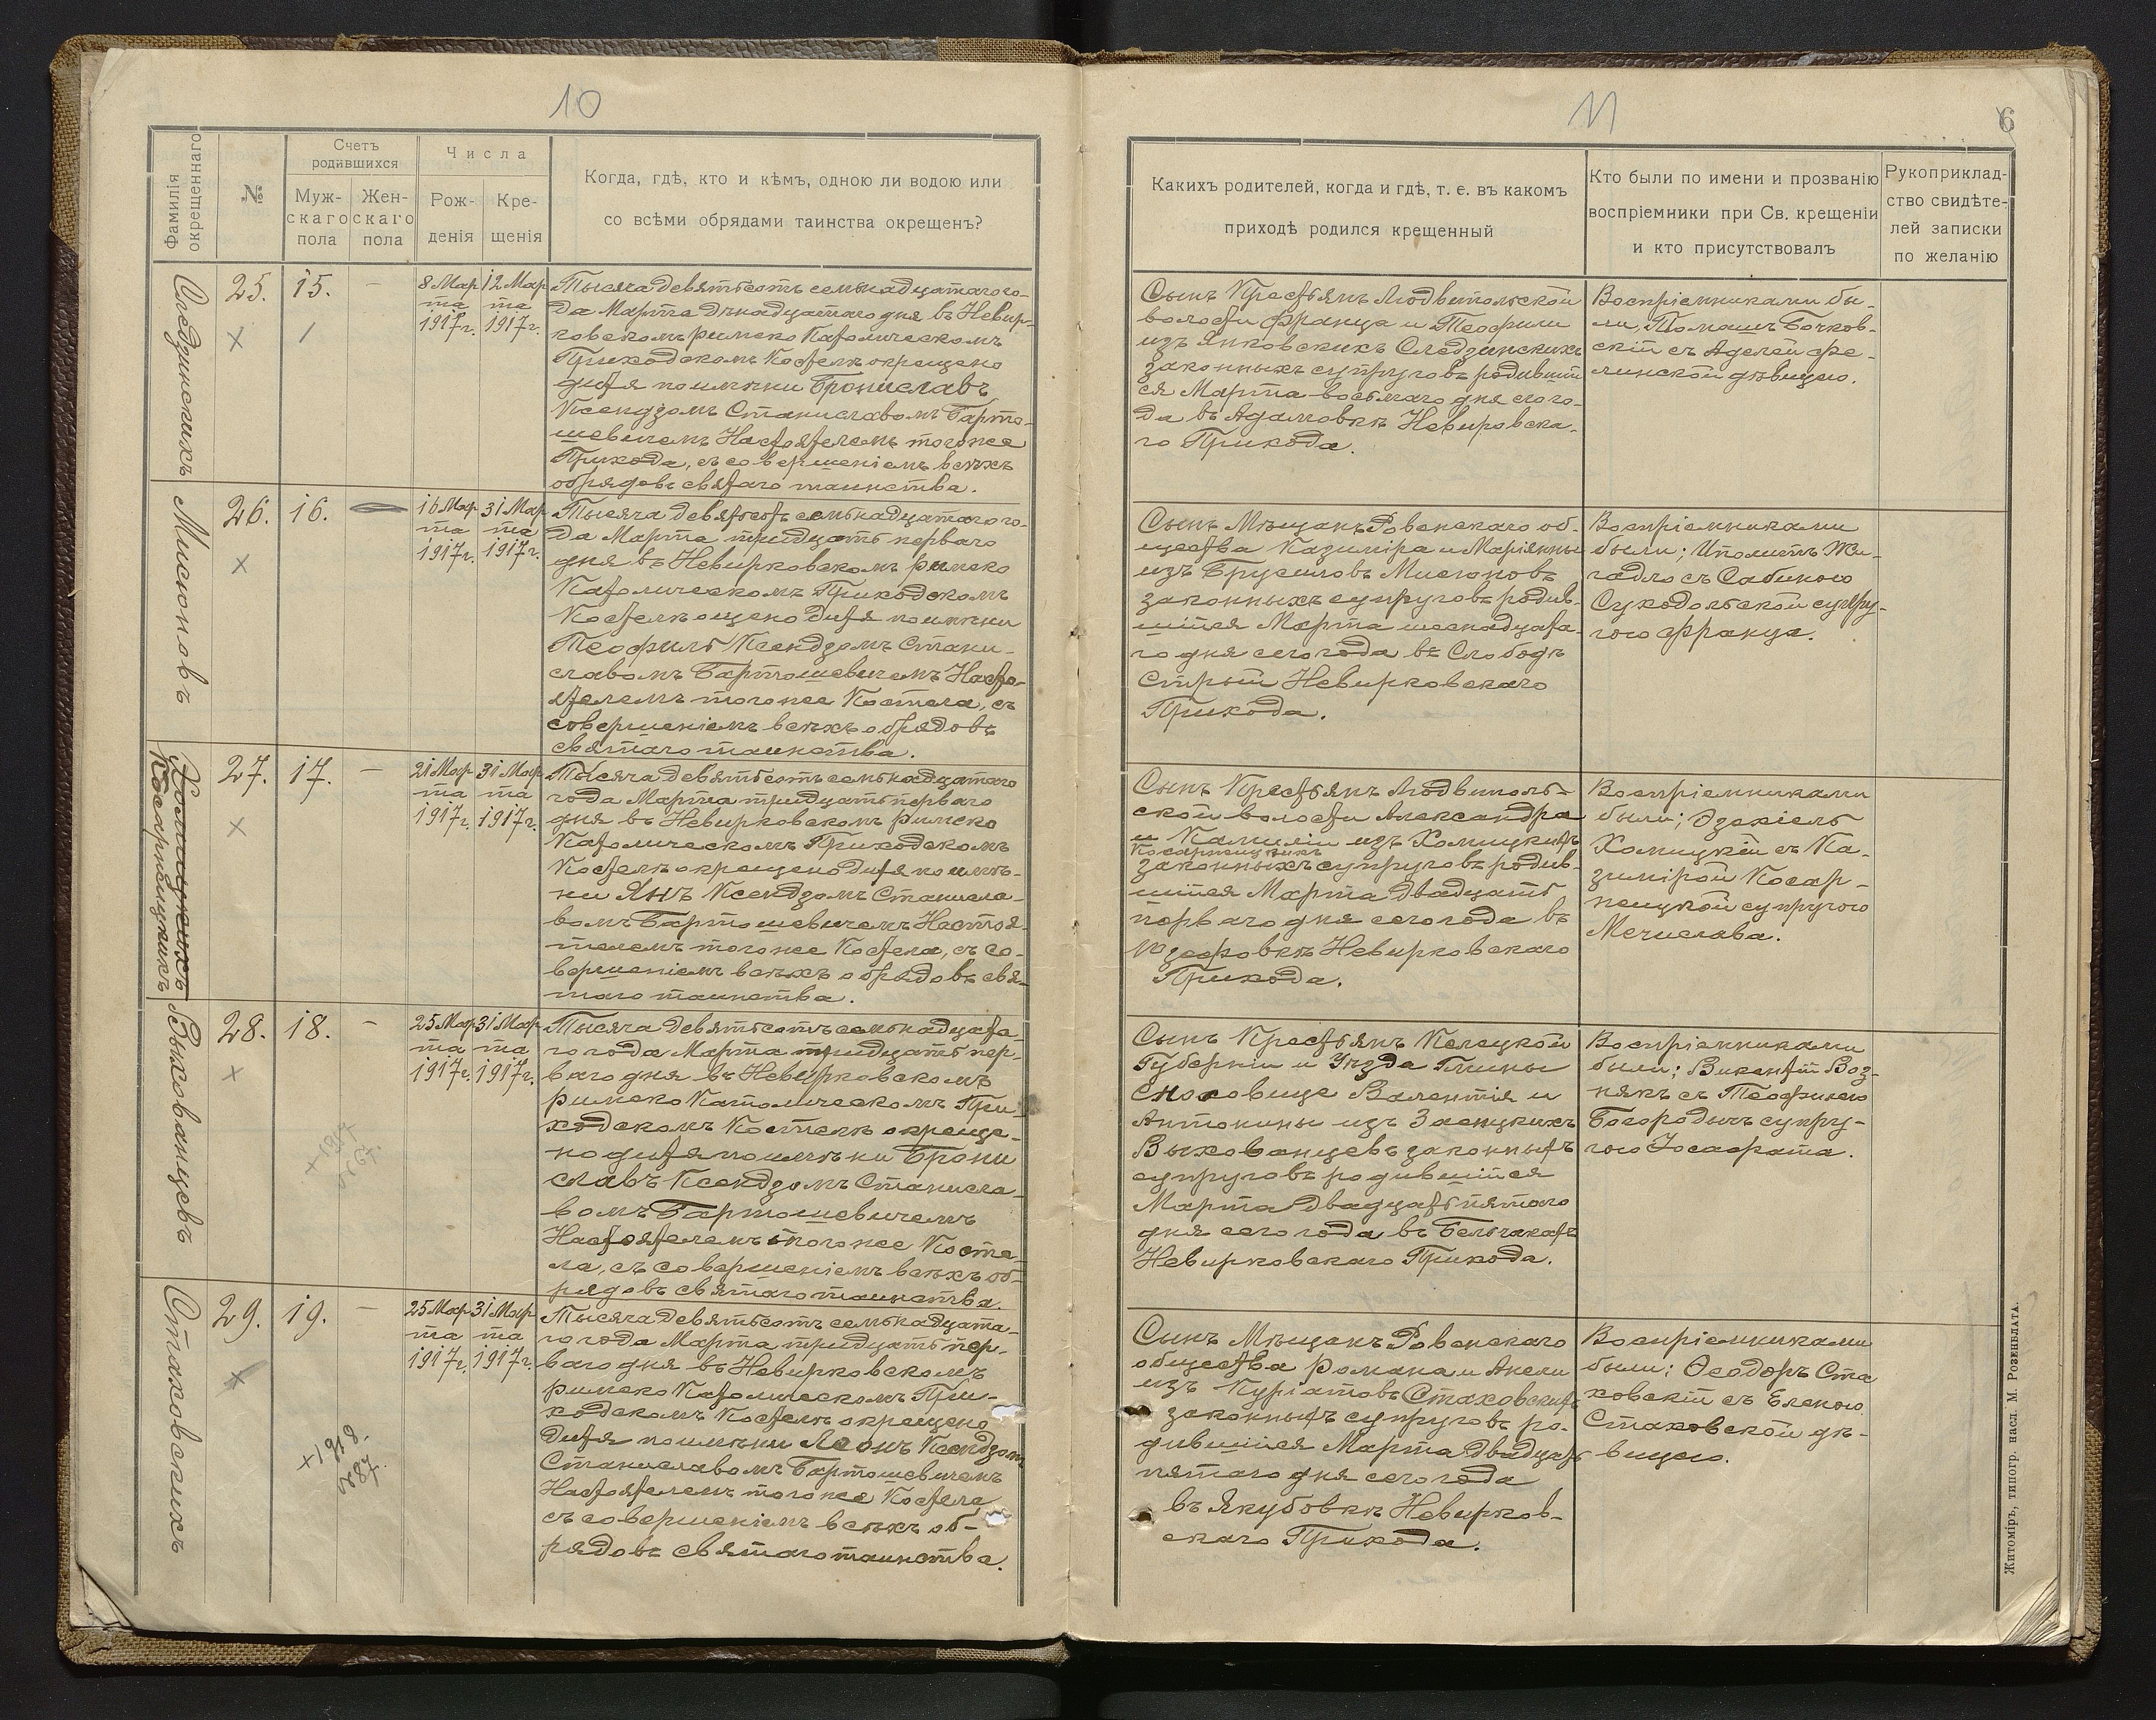 10
Фамилія окрещеннаго
№
Счетъ родившихся
Муж-скаго пола
Жен-скаго пола
Числа
Рож-денія
Кре-щенія
Когда, гдѣ, кто и кѣмъ, одною ли водою или
со всѣми обрядами таинства окрещенъ?
Слѣдзинскихъ
25.
15.
-
8 Мар
та
1917г.
12 Мар
та
1917г.
Тысяча девятьсотъ семьнадцатаго го-
да Марта двѣнадцатаго дня въ Невир-
ковскомъ римско Католическомъ
Приходскомъ Костелѣ окрещено
дитя по имени Брониславъ
Ксендзомъ Станиславомъ Барто-
шевичемъ Настоятелемъ тогоже
Прихода, съ совершеніемъ всѣхъ
обрядовъ святаго таинства.
Мисюновъ
26.
16.
16 Мар
та
1917г.
31 Мар
та
1917г.
Тысяча девятьсотъ семьнадцатаго го-
да Марта тридцать перваго
дня въ Невирковскомъ римско
Католическомъ Приходскомъ
Костелѣ ощено дитя по имени
Теофиль Ксендзомъ Стани-
славомъ Бартошевичемъ Насто-
ятелемъ тогоже Костела, съ
совершеніемъ всѣхъ обрядовъ
святаго таинства.
Косарнецкихъ
27.
17.
-
21 Мар
та
1917г.
31 Мар
та
1917г.
Тысяча девятьсотъ семьнадцатаго
года Марта тридцать перваго
дня въ Невирковскомъ Римско
Католическомъ Приходскомъ
Костелѣ окрещено дитя по име-
ни Янъ Ксендзомъ Станисла-
вомъ Бартошевичемъ Настоя-
телемъ тогоже Костела, съ со-
вершеніемъ всѣхъ обрядовъ свя-
таго таинства.
Выхованцевъ
28.
18.
-
25 Мар
та
1917г.
31 Мар
та
1917г.
+1917
№67.
Тысяча девятьсотъ семьнадцата-
го года Марта тридцать пер-
ваго дня въ Невирковскомъ
римско Католическомъ При-
ходскомъ Костелѣ окреще-
но дитя по имени Брони
славъ Ксендзомъ Станисла-
вомъ Бартошевичемъ
Настоятелемъ тогоже Косте
ла, съ совершеніемъ всѣхъ об-
рядовъ святаго таинства.
Стаховскихъ
29.
19.
-
25 Мар
та
1917г.
31 Мар
та
1917г.
+1918.
№87.
Тысяча девятьсотъ семьнадцата-
го года Марта тридцать пер-
ваго дня въ Невирковскомъ
римско Католическомъ При-
ходскомъ Костелѣ окрещено
дитя по имени Леонъ Ксендзомъ
Станиславомъ Бартошевичемъ
Настоятелемъ тогоже Костела
съ совершеніемъ всѣхъ об-
рядовъ святаго таинства.
11
6
Какихъ родителей, когда и гдѣ, т. е. въ какомъ
приходѣ родился крещенный
Кто были по имени и прозванію
воспріемники при Св. крещеніи
и кто присутствовалъ
Рукоприклад-
ство свидѣте-
лей записки
по желанію
Сынъ Крестьянъ Людвипольской
волости Франца и Теофили
изъ Янковскихъ Слѣдзинскихъ
законныхъ супруговъ родившій
ся Марта восьмаго дня сего го-
да въ Адамовкѣ Невирковска-
го Прихода.
Воспріемниками бы-
ли, Томашъ Бочков-
скій съ Аделей Фе-
линской дѣвицею.
Сынъ Мѣщанъ Ровенскаго об-
щества Казиміра и Маріянны
изъ Брусиловъ Мисюновъ
законныхъ супруговъ родив-
шійся Марта шеснадцата-
го дня сего года въ Слободѣ
Старый Невирковскаго
Прихода.
Воспріемниками
были; Иполитъ Жи-
гадло съ Сабиною
Суходольской супру-
гою Франца.
Сынъ Крестьянъ Людвиполь-
ской волости Александра
и Камиліи изъ Хомицкихъ
Косарнецкихъ
законныхъ супруговъ родив-
шійся Марта двадцать
перваго дня сего года въ
Юзефовкѣ Невирковскаго
Прихода.
Воспріемниками
были; Эзехіель
Хомицкій съ Ка-
зимірой Косар-
нецкой супругою
Мечислава.
Сынъ Крестьянъ Келецкой
Губерніи и Уѣзда Гмины
Сноховице Валентія и
Антонины изъ Заенцкихъ
Выхованцевъ законныхъ
супруговъ родившійся
Марта двадцать пятаго
дня сего года въ Бельчакахъ
Невирковскаго Прихода.
Воспріемниками
были; Викентій Воз-
някъ съ Теофилею
Богородичъ супру-
гою Іосафата.
Сынъ Мѣщанъ Ровенскаго
общества Романа и Анели
изъ Куріатовъ Стаховскихъ
законныхъ супруговъ ро-
дившійся Марта двадцать
пятаго дня сего года
въ Якубовкѣ Невирков-
скаго Прихода.
Воспріемниками
были; Ѳеодоръ Ста
ховскій съ Еленою
Стаховской дѣ-
вицею.
Житоміръ, типогр. насл. М. Розенблата.